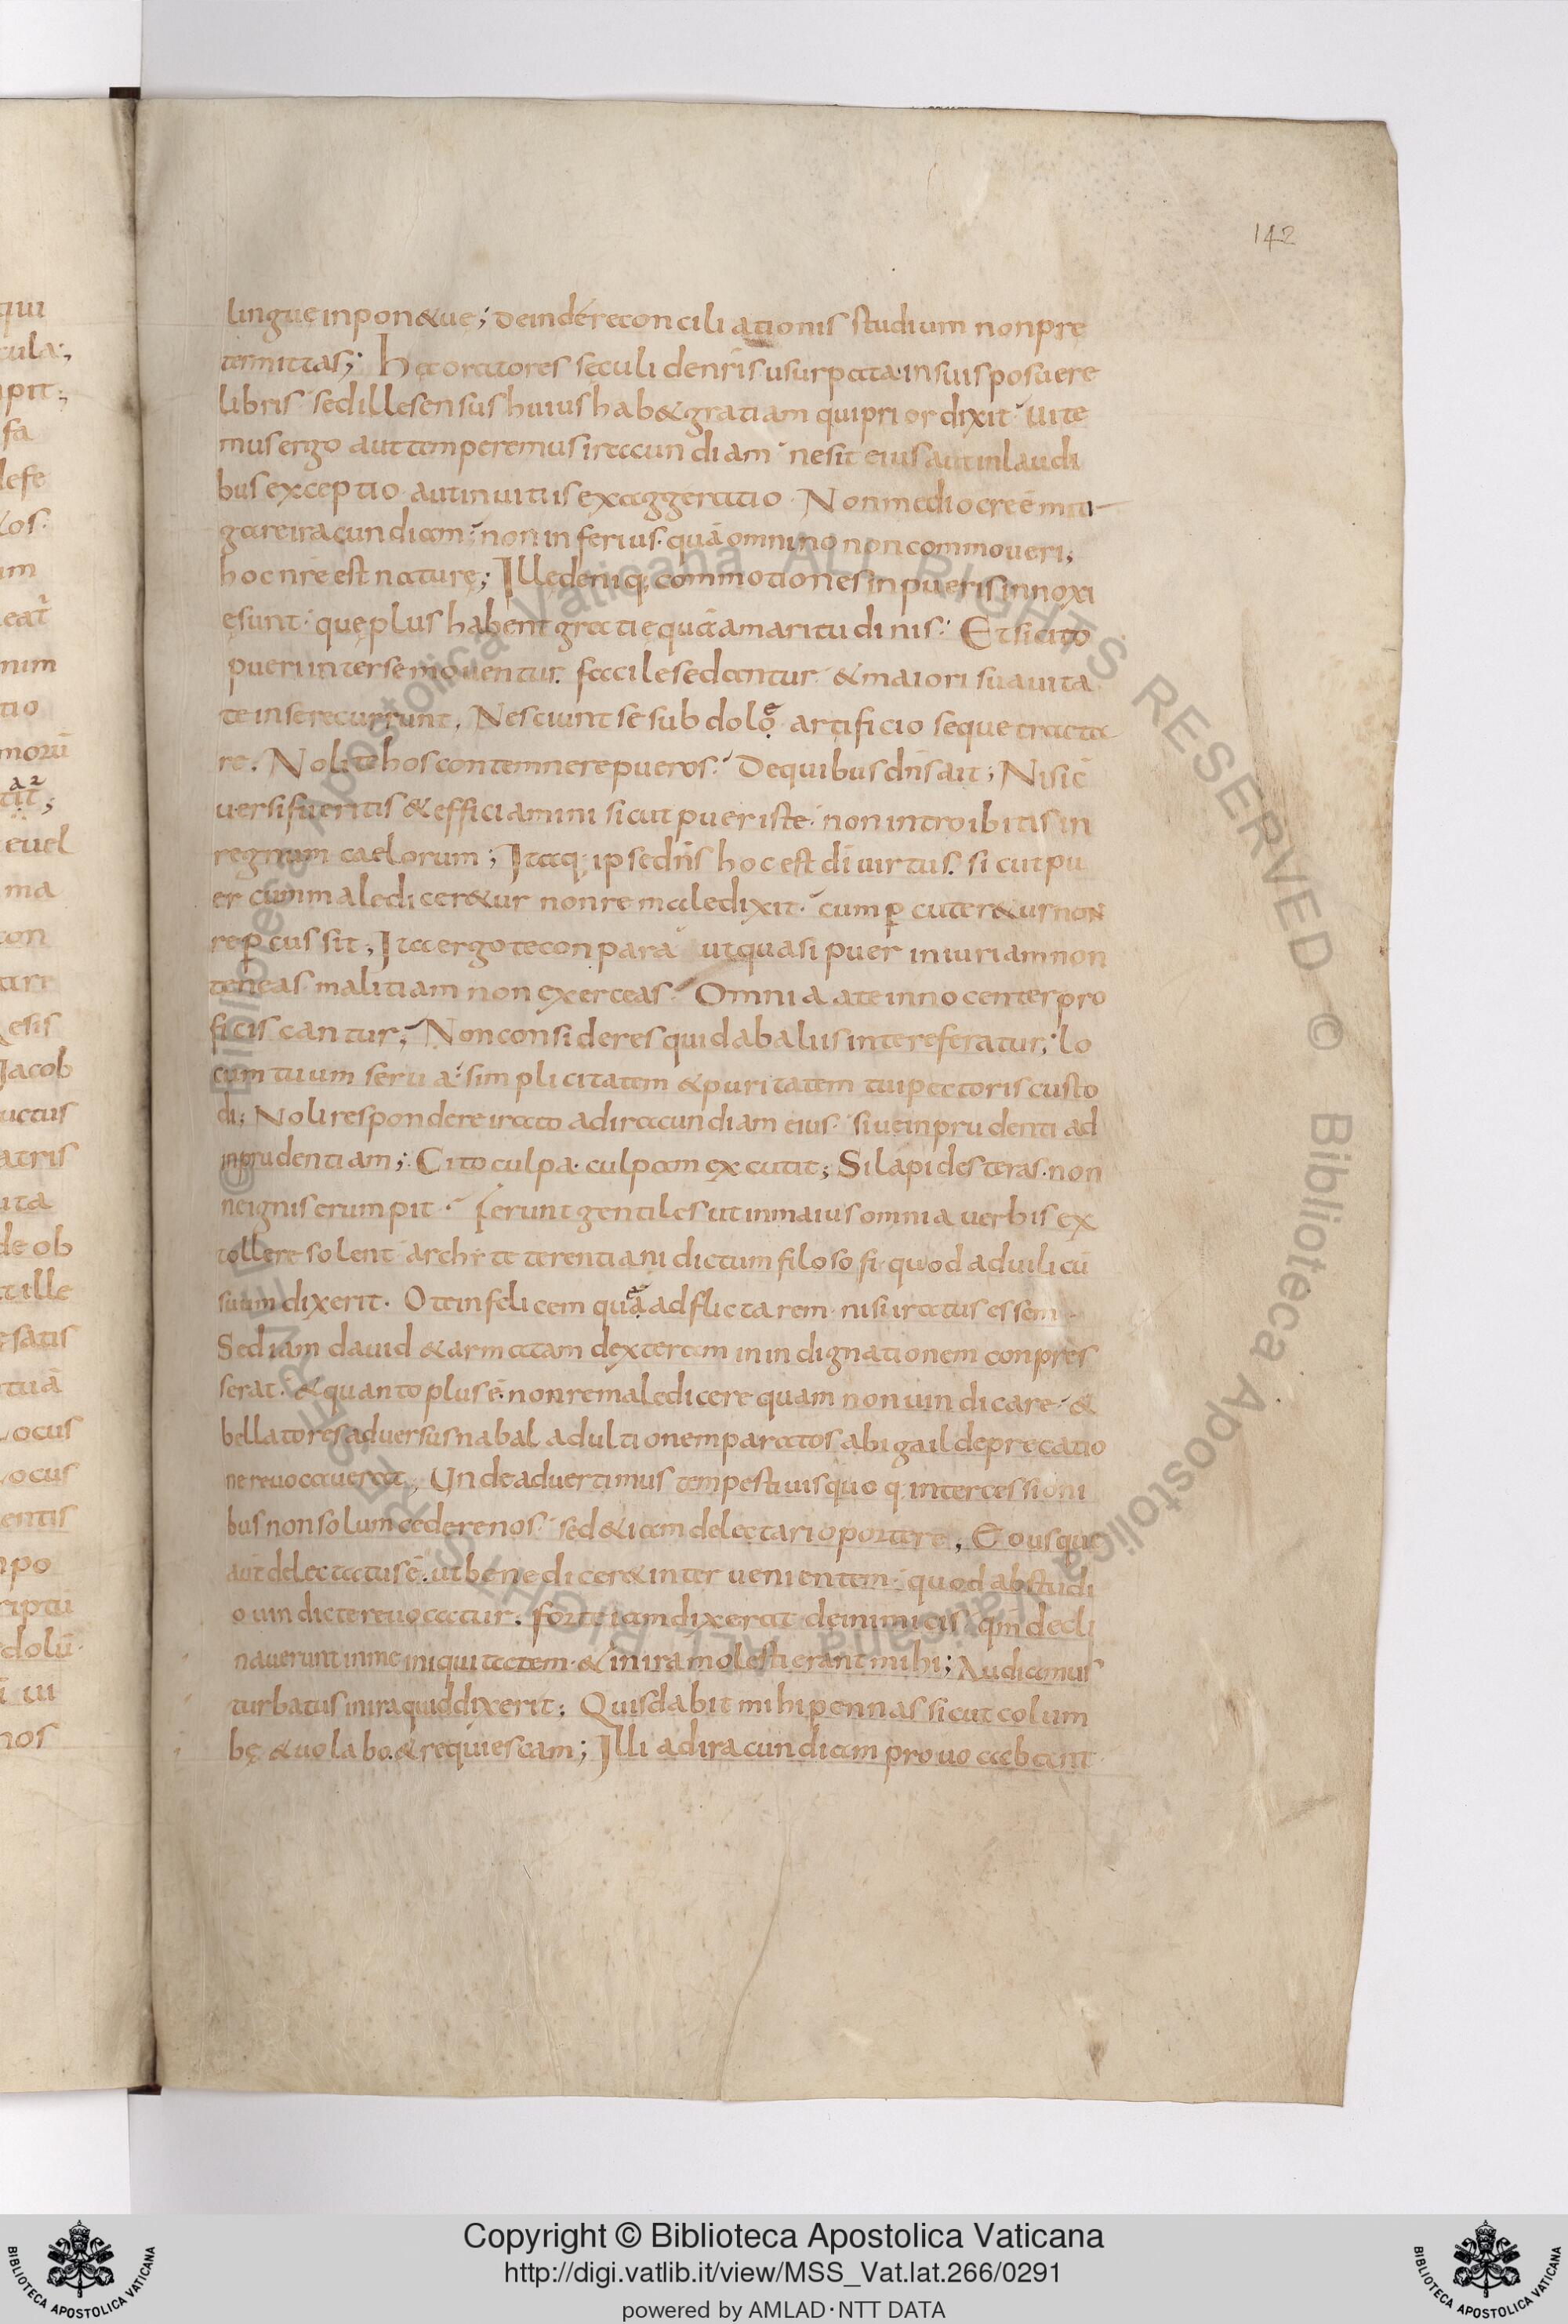 qui
cula;
pit;
sa
defe
os
um
eat
nim
tio
morū
tit;
a2
euel
ma
con
arr
esis
Jacob
uctus
atris
uta
de ob
t ille
esatis
tuā
locus
locus
entis
mpo
riptu
dolū
ui
nos
142
linguę inpon&ue; deinde reconciliationis studium non pre
termittas; Hęc oratores seculi denr̄is usurpata in suis posuere
libris sed ille sensus huius hab& gratiam qui prior dixit uite
mus ergo aut temperemus iracundiam ne sit eius aut in laudi
bus exceptio aut in uitiis exaggeratio. Non mediocre ē miti
gare iracundiam non inferius quā omnino non commoueri;
hoc nr̄e est naturę; Illę deniq; commotiones in pueris innoxi
ę sunt quę plus habent gratię quā amaritudinis. Et si cito
pueri inter se mouentur facile sedantur & maiori suauita
te in se recurrunt. Nesciunt se subdolo artificio seque tracta
re. Nolite hos contemnere pueros. De quibus dn̄s ait; Nisi c̄
uersi fueritis & efficiamini sicut puer iste non introibitis in
regnum caelorum; Itaq; ipse dn̄s hoc est dī uirtus sicut pu
er cum maledicer&ur non remaledixit cum p̱cuter&ur non
rep̱cussit; Ita ergo te conpara ut quasi puer iniuriam non
teneas malitiam non exerceas. Omnia a te innocenter pro
ficiscantur; Non consideres quid ab aliis in te referatur; lo
cum tuum serua simplicitatem & puritatem tui pectoris custo
di; Noli respondere irato ad iracundiam eius siue inprudenti ad
inprudentiam; Cito culpa culpam excutit; Si lapides teras non
ne ignis erumpit. ferunt gentiles ut in maius omnia uerbis ex
tollere solent archite terentiani dictum filosofi quod ad uilicū
suum dixerit. O te infelicem quā adflictarem nisi iratus essem
Sed iam dauid & armatam dexteram in indignationem conpres
serat & quanto plus ē non remaledicere quam non uindicare &
bellatores aduersus nabal ad ultionem paratos abigail deprecatio
ne reuocauerat. Unde aduertimus tempestiuis quoq; intercessioni
bus non solum cedere nos sed &iam delectari oportere; Eo usque
aut̄ delectatus ē ut benedicer& interuenientem quod ab studi
o uindictę reuocatur. forte iam dixerat de inimicis qm̄ decli
nauerunt in me iniquitatem & in ira molesti erant mihi; Audiamus
turbatus in ira quid dixerit; Quis dabit mihi pennas sicut colum
bę & uolabo & requiescam; Illi ad iracundiam prouocabant
© Biblioteca Apostolica Vaticana ALL RIGHTS RESERVED
© Biblioteca Apostolica Vaticana ALL RIGHTS RESERVED
Copyright © Biblioteca Apostolica Vaticana
http://digi.vatlib.it/view/MSS_Vat.lat.266/0291
powered by AMLAD·NTT DATA
BIBLIOTECA APOSTOLICA VATICANA
BIBLIOTECA APOSTOLICA VATICANA